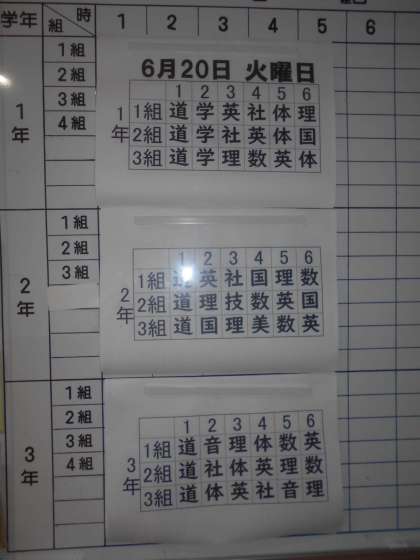 学年 時 組 1 2 3 4 5 6
6月20日 火曜日
1 2 3 4 5 6
1組 道 学 英 社 体 理
2組 道 学 社 英 体 国
3組 道 学 理 数 英 体
1年
1年
1組
2組
3組
4組
1 2 3 4 5 6
1組 道 英 社 国 理 数
2組 道 理 技 数 英 国
3組 道 国 理 美 数 英
2年
2年
1組
2組
3組
1 2 3 4 5 6
1組 道 音 理 体 数 英
2組 道 社 体 英 理 数
3組 道 体 英 社 音 理
3年
3年
1組
2組
3組
4組